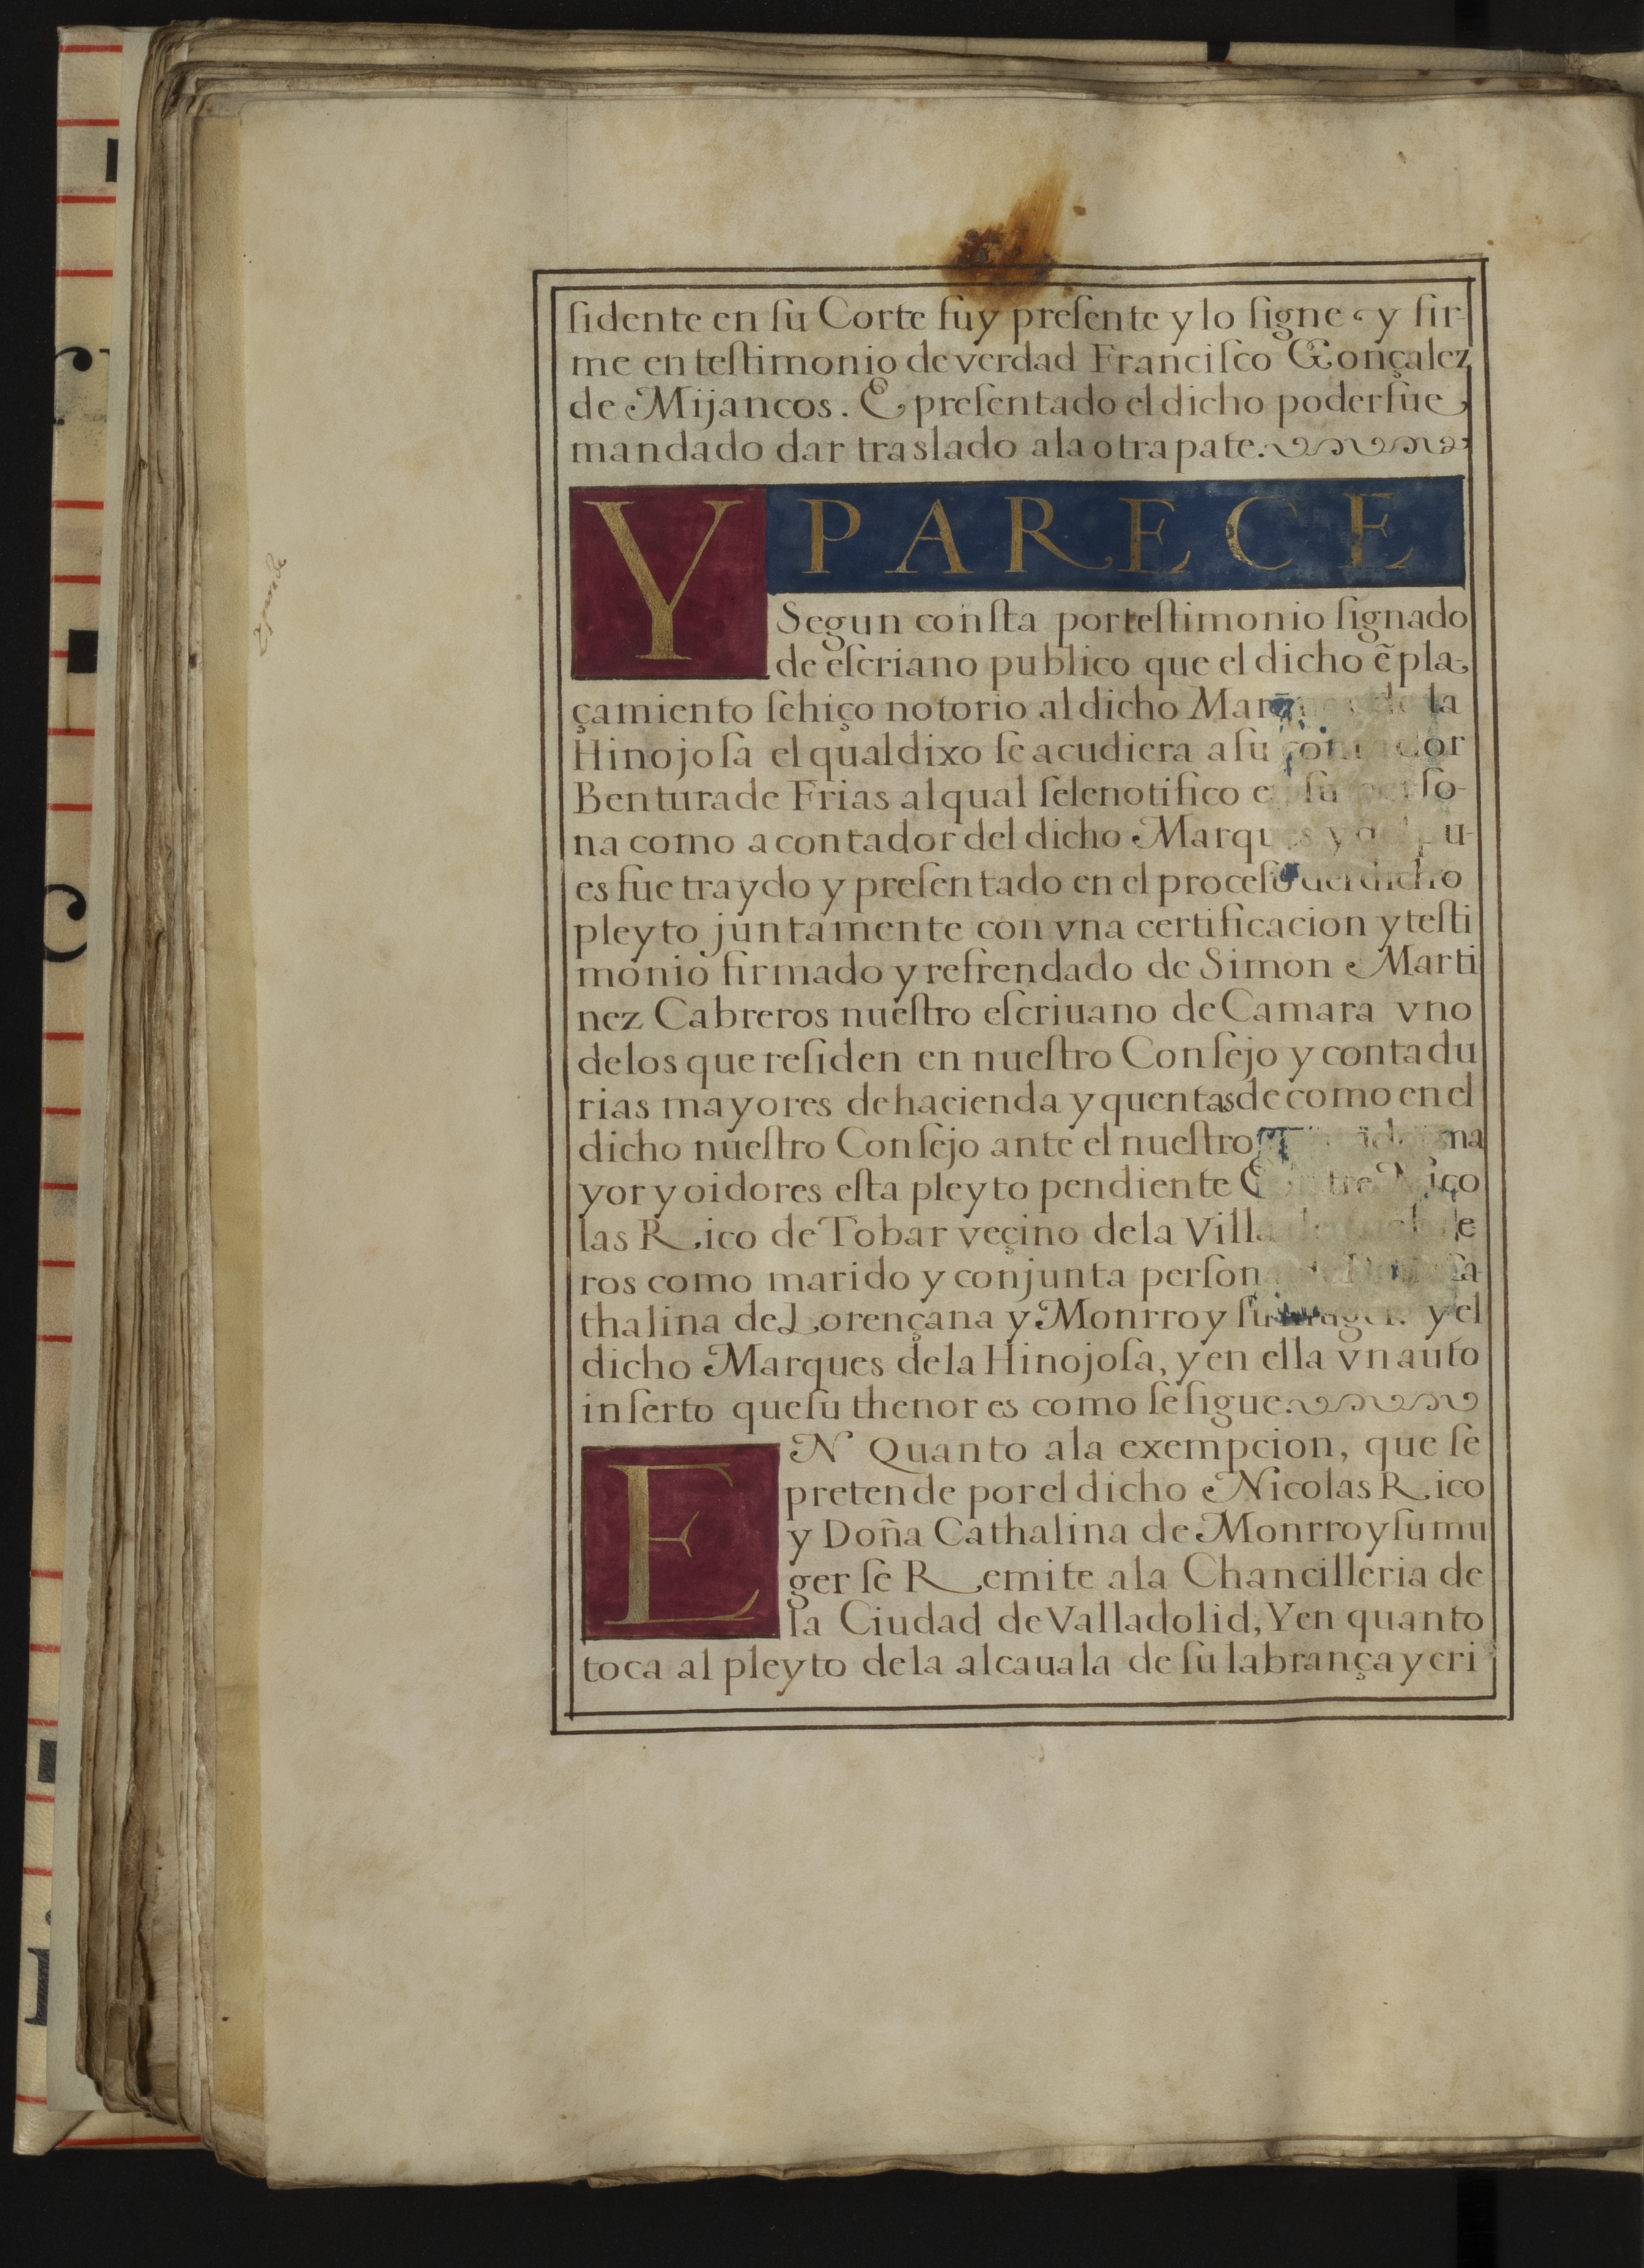 ſidente en ſu Corte fuy preſente y lo ſigne y fir-
me en teſtimonio de verdad Franciſco Gonçalez
de Mijancos. E preſentado el dicho poder fue
mandado dar traslado ala otra pate.
Y PARECE
Segun conſta por teſtimonio ſignado
de eſcriano publico que el dicho ẽpla-
çamiento ſe hiço notorio al dicho la
Hinojoſa el qual dixo ſe acudiera a ſu
Bentura de Frias al qual ſele notifico en ſu perſo-
na como a contador del dicho Marques y
es fue traydo y preſentado en el proceſo del dicho
pleyto juntamente con vna certificacion y teſti
monio firmado y refrendado de Simon Marti
nez Cabreros nueſtro eſcriuano de Camara vno
delos que reſiden en nueſtro Conſejo y contadu
rias mayores de hacienda y quentas de como en el
dicho nueſtro Conſejo ante el nueſtro ma
yor y oidores eſta pleyto pendiente Nico
las Rico de Tobar veçino dela Villa
ros como marido y conjunta perſona
thalina de Lorençana y Monrroy ſu muger. y el
dicho Marques dela Hinojoſa, y en ella vn auto
inſerto que ſu thenor es como ſe ſigue.
EN Quanto ala exempcion, que ſe
pretende por el dicho Nicolas Rico
y Doña Cathalina de Monrroy ſu mu
ger ſe Remite ala Chancilleria de
la Ciudad de Valladolid, Y en quanto
toca al pleyto dela alcauala de ſu labrança y cri